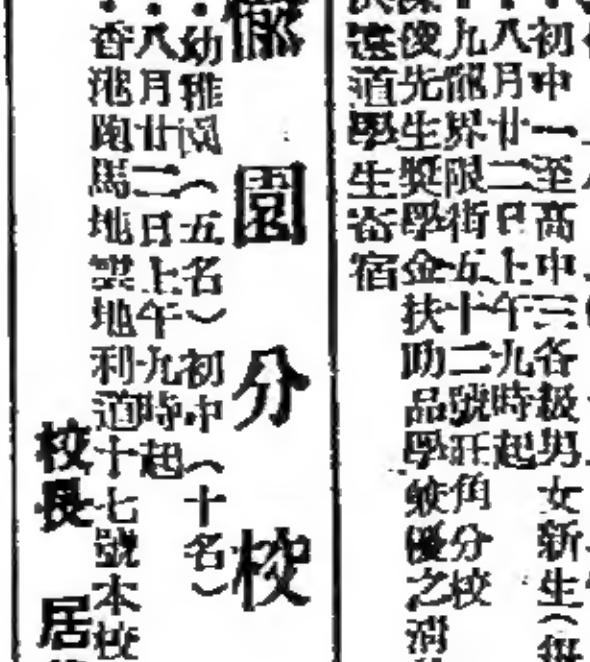 初中一至高中三各級男女新生
八月廿二日上午九時起
九龍界限街五十二號旺角分校
俊先生獎學金扶助品學
遠道學生寄宿
園分校
幼稚園（五名）初中（十名）
八月廿二日上午九時起
香港跑馬地雲地利道十七號本校
校長 居